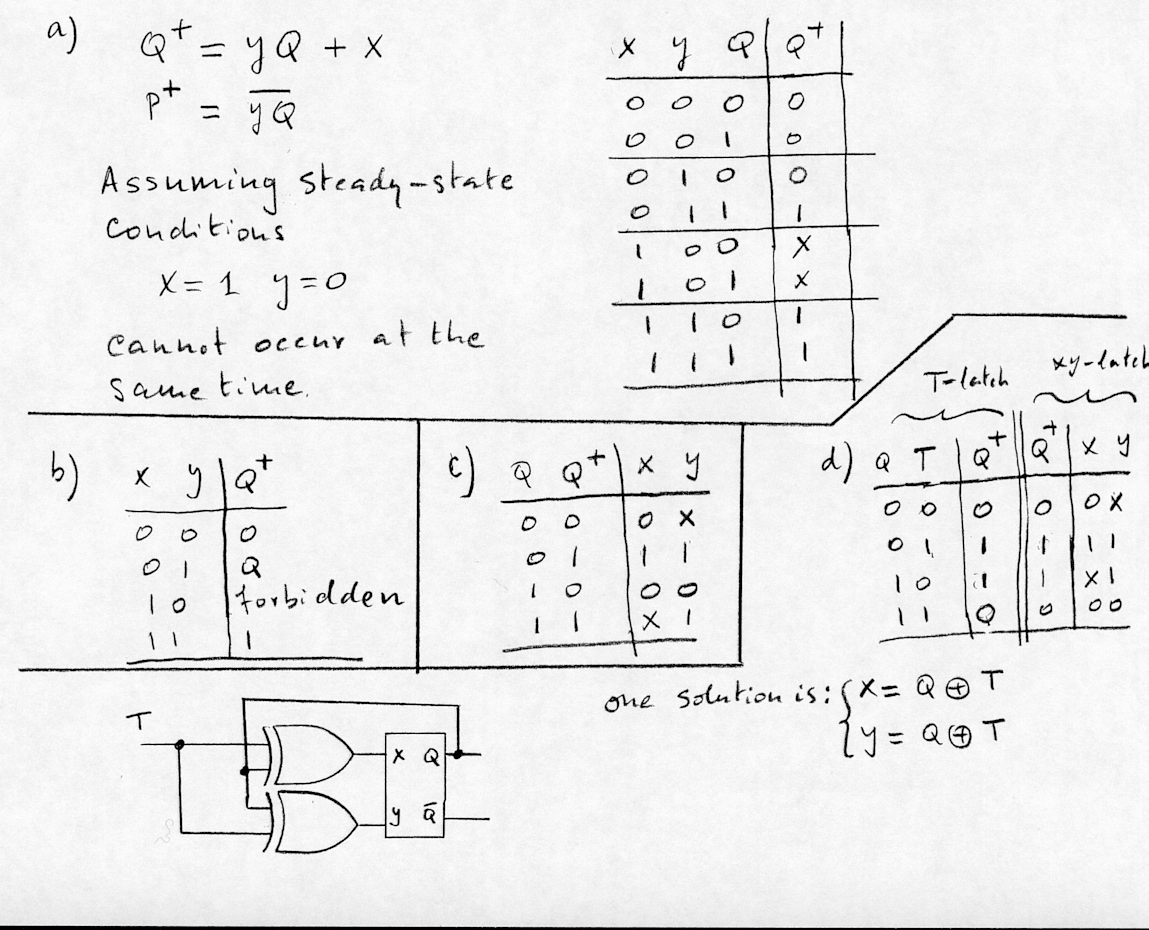 a)
Q⁺ = yQ + x
P⁺ = \overline{yQ}
Assuming steady-state
conditions
x = 1 y = 0
cannot occur at the
same time.
x y Q | Q⁺
0 0 0 | 0
0 0 1 | 0
0 1 0 | 0
0 1 1 | 1
1 0 0 | x
1 0 1 | x
1 1 0 | 1
1 1 1 | 1
b)
x y | Q⁺
0 0 | 0
0 1 | Q
1 0 | forbidden
1 1 | 1
c)
Q Q⁺ | x y
0 0 | 0 x
0 1 | 1 1
1 0 | 0 0
1 1 | x 1
d)
T-latch xy-latch
Q T | Q⁺ || Q⁺ | x y
0 0 | 0 || 0 | 0 x
0 1 | 1 || 1 | 1 1
1 0 | 1 || 1 | x 1
1 1 | 0 || 0 | 0 0
one solution is: { x = Q ⊕ T
{ y = Q ⊕ T
T
x Q
y Q̄